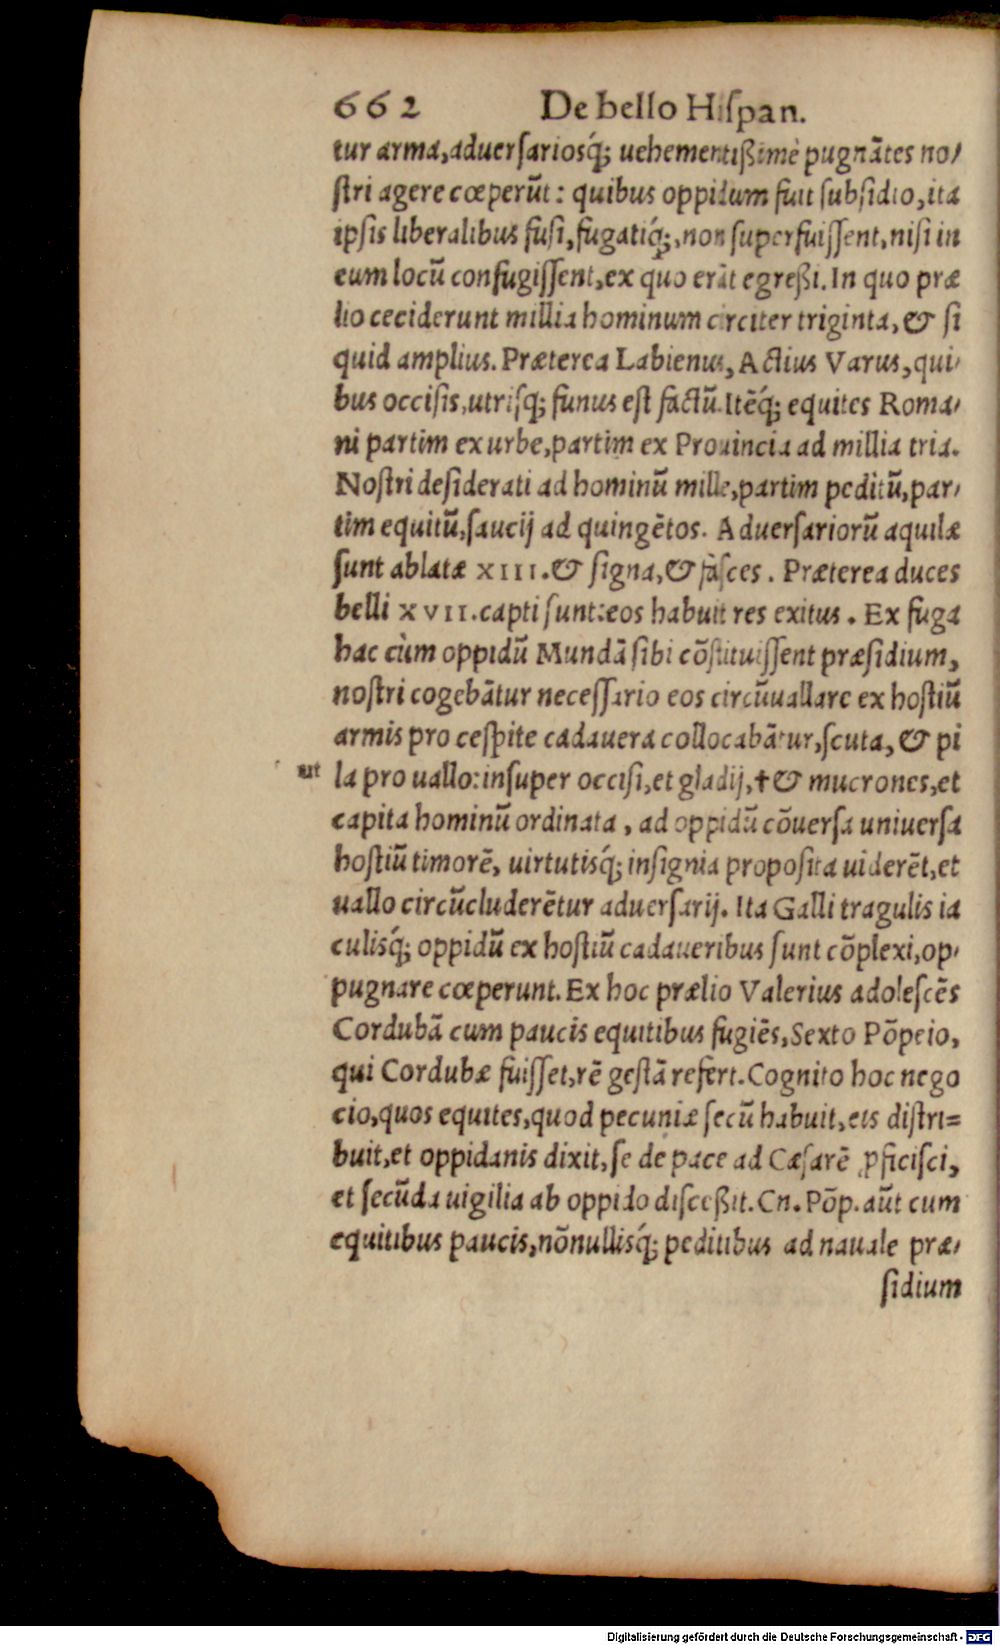 662 De bello Hispan.
tur arma, aduersariosq́; uehementißimè pugnãtes no/
ſtri agere cœperũt: quibus oppidum fuit ſubſidio, ita
ipſis liberalibus fuſi, fugatiq́;, non ſuperfuiſſent, niſi in
eum locũ confugiſſent, ex quo erãt egreßi. In quo præ
lio ceciderunt millia hominum circiter triginta, & ſi
quid amplius. Præterea Labienus, Actius Varus, qui/
bus occiſis, utriſq; funus eſt factũ. Itẽq́; equites Roma/
ni partim ex urbe, partim ex Prouincia ad millia tria.
Noſtri deſiderati ad hominũ mille, partim peditũ, par/
tim equitũ, ſaucij ad quingẽtos. Aduerſariorũ aquilæ
ſunt ablatæ XIII. & ſigna, & faſces. Præterea duces
belli XVII. capti ſunt: eos habuit res exitus. Ex fuga
hac cùm oppidũ Mundã ſibi cõſtituiſſent præſidium,
noſtri cogebãtur neceſſario eos circũuallare ex hoſtiũ
armis pro ceſpite cadauera collocabãtur, ſcuta, & pi
ut la pro uallo: inſuper occiſi, et gladij, † & mucrones, et
capita hominũ ordinata, ad oppidũ cõuerſa uniuerſa
hoſtiũ timorẽ, uirtutisq́; inſignia propoſita uiderẽt, et
uallo circũcluderẽtur aduerſarij. Ita Galli tragulis ia
culisq́; oppidũ ex hoſtiũ cadaueribus ſunt cõplexi, op/
pugnare cœperunt. Ex hoc prælio Valerius adoleſcẽs
Cordubã cum paucis equitibus fugiẽs, Sexto Põpeio,
qui Cordubæ fuiſſet, rẽ geſtã refert. Cognito hoc nego
cio, quos equites, quod pecuniæ ſecũ habuit, eis diſtri=
buit, et oppidanis dixit, ſe de pace ad Cæſarẽ ꝓficiſci,
et ſecũda uigilia ab oppido diſceßit. Cn. Põp. aũt cum
equitibus paucis, nõnullisq́; peditibus ad nauale præ/
ſidium
Digitalisierung gefördert durch die Deutsche Forschungsgemeinschaft - DFG